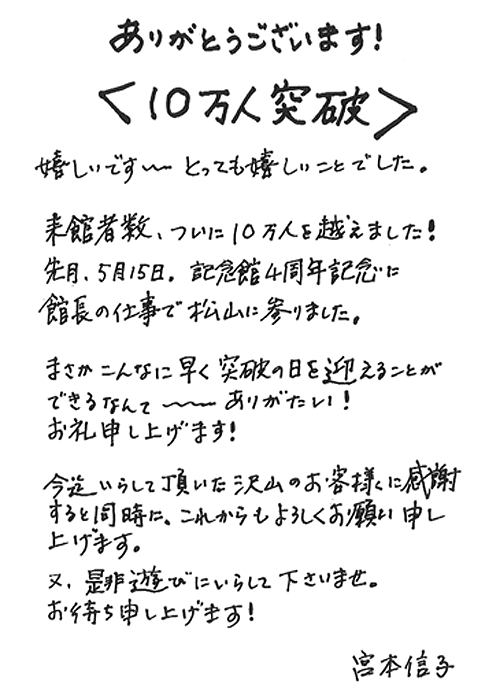 ありがとうございます!
<10万人突破>
嬉しいです〜〜とっても嬉しいことでした。
来館者数、ついに10万人を越えました!
先月、5月15日。記念館4周年記念に
館長の仕事で松山に参りました。
まさかこんなに早く突破の日を迎えることが
できるなんて〜〜〜ありがたい!
お礼申し上げます!
今迄いらして頂いた沢山のお客様々に感謝
すると同時に、これからもよろしくお願い申し
上げます。
又、是非遊びにいらして下さいませ。
お待ち申し上げます!
宮本信子